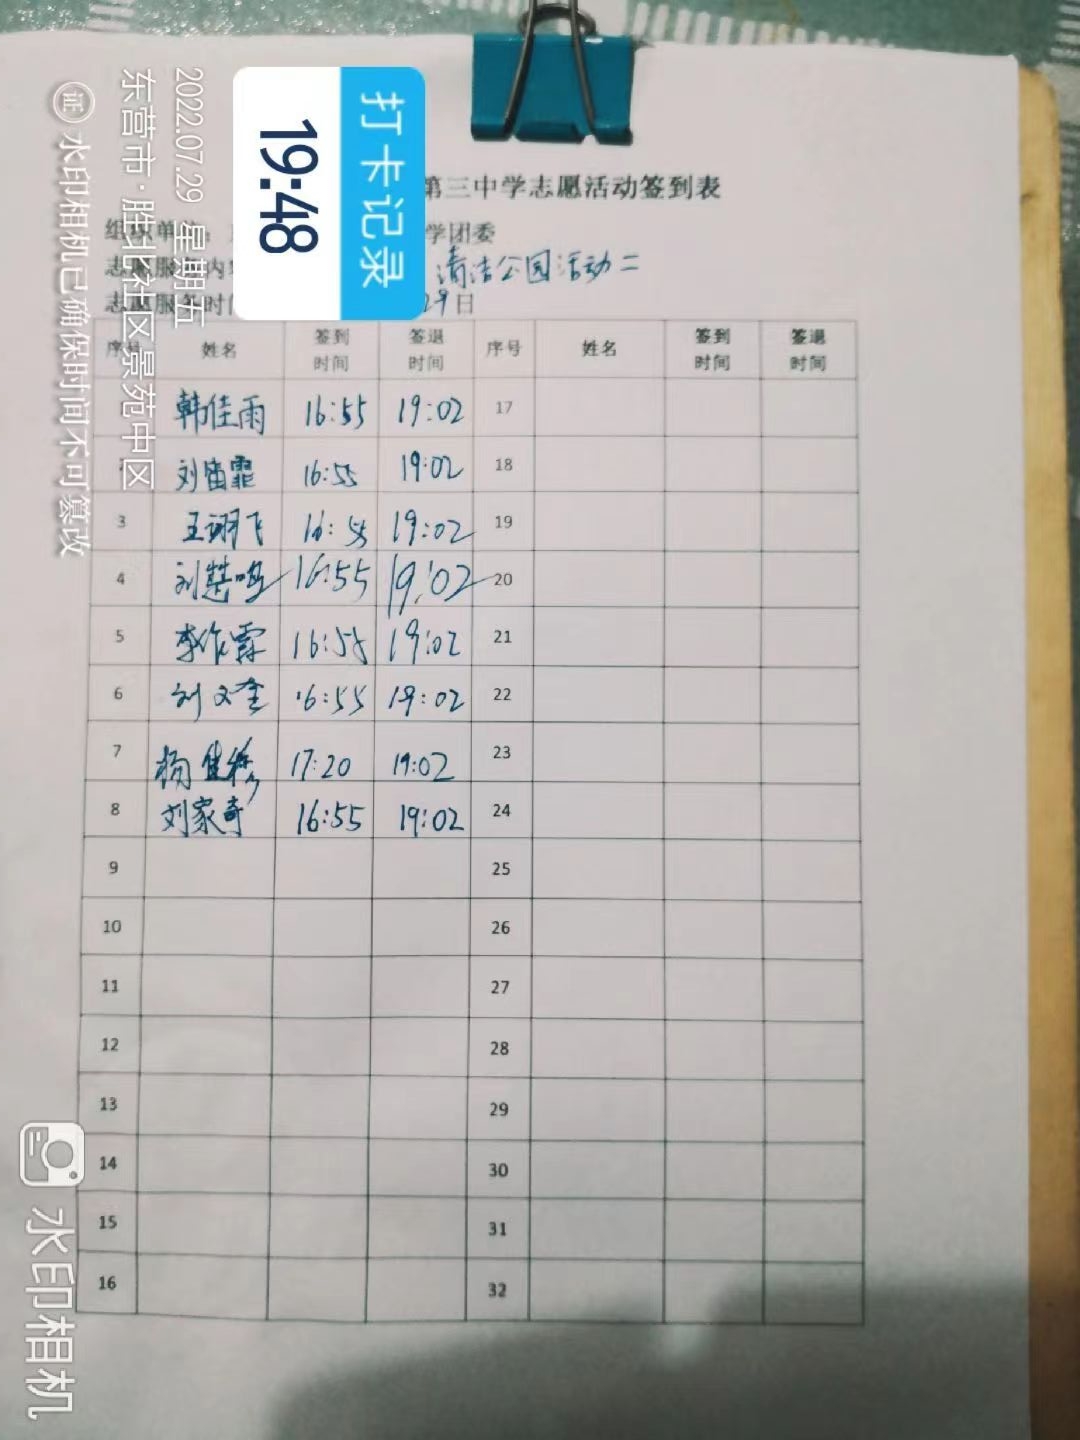 打卡记录
19:48
2022.07.29 星期五
东营市·胜北社区景苑中区
证 水印相机已确保时间不可篡改
第三中学志愿活动签到表
学团委
清洁公园活动二
29日
序号 姓名 签到时间 签退时间 序号 姓名 签到时间 签退时间
韩佳雨 16:55 19:02 17
刘宙霏 16:55 19:02 18
3 王翊飞 16:55 19:02 19
4 刘慧鸣 16:55 19:02 20
5 李作霖 16:55 19:02 21
6 刘文奎 16:55 19:02 22
7 杨佳修 17:20 19:02 23
8 刘家奇 16:55 19:02 24
9 25
10 26
11 27
12 28
13 29
14 30
15 31
16 32
水印相机